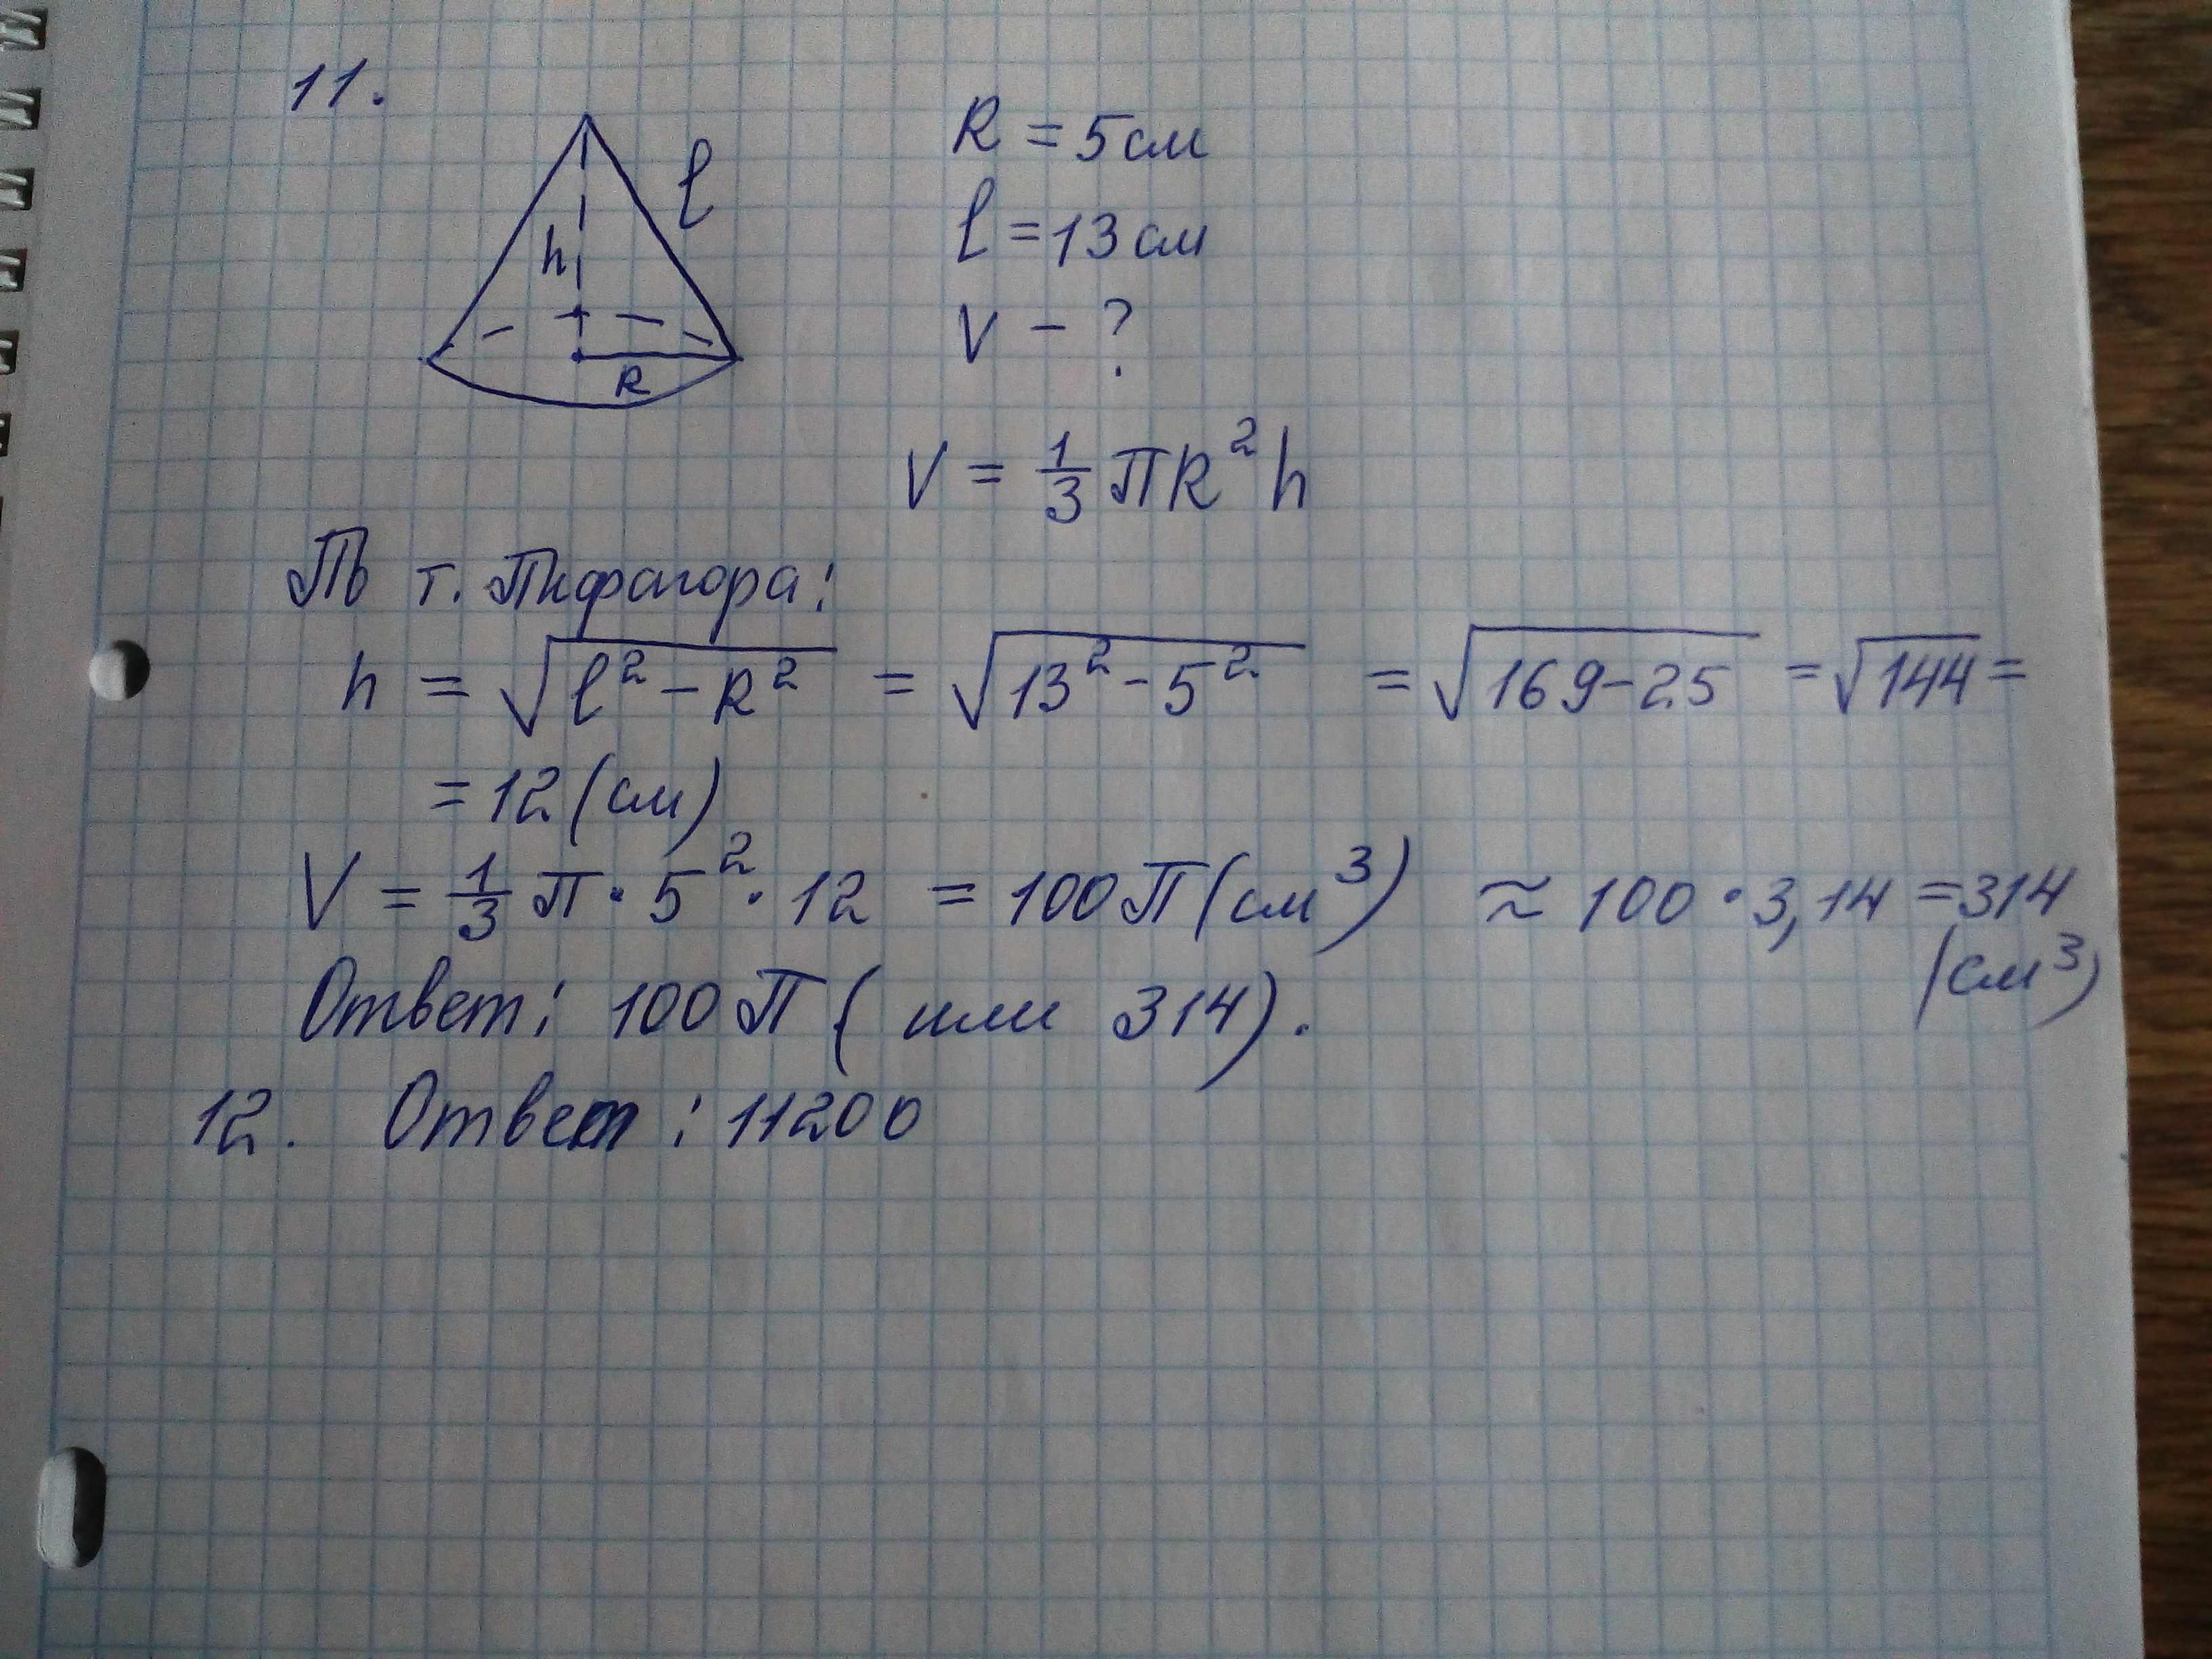 11.
l
h
R
R = 5см
l = 13см
V - ?
V = 1/3 ПR²h
По т. Пифагора:
h = √(l² - R²) = √(13² - 5²) = √(169 - 25) = √144 =
= 12 (см)
V = 1/3 П · 5² · 12 = 100П (см³) ≈ 100 · 3,14 = 314
(см³)
Ответ: 100П (или 314).
12. Ответ: 11200